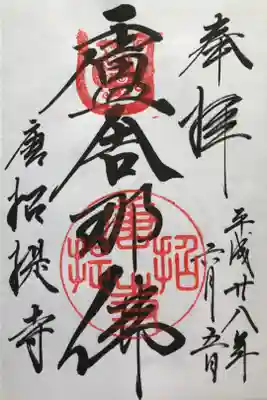 奉拝
平成廿八年
六月五日
盧舎那佛
唐招提寺